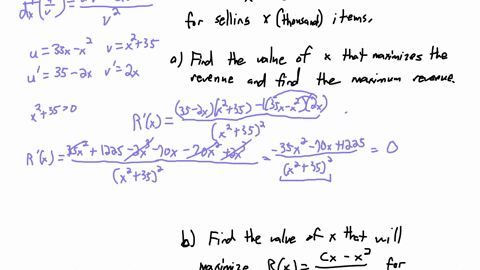 d/dx (u/v) = / v²
for selling x (thousand) items.
u = 35x-x² v = x²+35
u' = 35-2x v' = 2x
a) Find the value of x that maximizes the
revenue and find the maximum revenue.
x²+35>0
R'(x) = (35-2x)(x²+35) - 1(35x-x²)(2x) / (x²+35)²
R'(x) = 35x² + 1225 - 2x³ - 70x - 70x² + 2x³ / (x²+35)² = -35x² - 70x + 1225 / (x²+35)² = 0
b) Find the value of x that will
maximize R(x) = cx - x² for